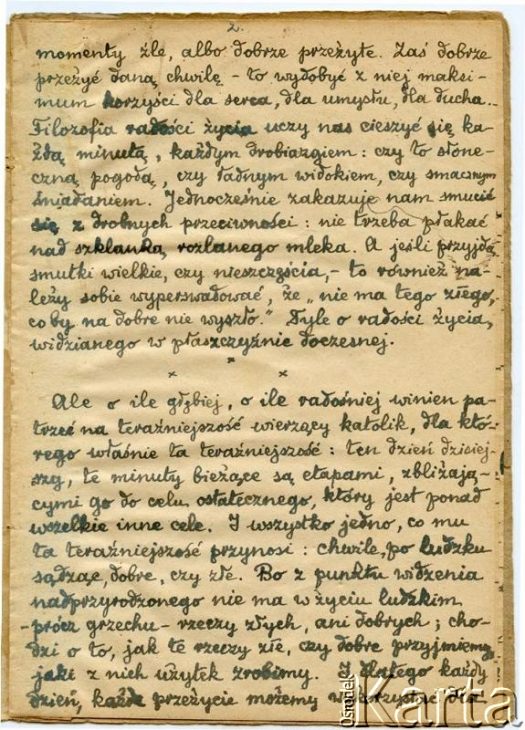 2.
momenty źle, albo dobrze przeżyte. Zaś dobrze
przeżyć daną chwilę - to wydobyć z niej maksi-
mum korzyści dla serca, dla umysłu, dla ducha..
Filozofia radości życia uczy nas cieszyć się ka-
żdą minutą, każdym drobiazgiem: czy to słone-
czną pogodą, czy ładnym widokiem, czy smacznym
śniadaniem. Jednocześnie zakazuje nam smucić
się z drobnych przeciwności: nie trzeba płakać
nad szklanką rozlanego mleka. A jeśli przyjdą
smutki wielkie, czy nieszczęścia, - to również na-
leży sobie wyperswadować, że „nie ma tego złego,
coby na dobre nie wyszło." Tyle o radości życia,
widzianego w płaszczyźnie doczesnej.
x x x
Ale o ile głębiej, o ile radośniej winien pa-
trzeć na teraźniejszość wierzący katolik, dla któ-
rego właśnie ta teraźniejszość: ten dzień dzisiej-
szy, te minuty bieżące są etapami, zbliżają-
cymi go do celu ostatecznego, który jest ponad
wszelkie inne cele. I wszystko jedno, co mu
ta teraźniejszość przynosi: chwile, po ludzku
sądząc, dobre, czy złe. Bo z punktu widzenia
nadprzyrodzonego nie ma w życiu ludzkim
- prócz grzechu - rzeczy złych, ani dobrych; cho-
dzi o to, jak te rzeczy złe, czy dobre przyjmiemy,
jaki z nich użytek zrobimy. I dlatego każdy
dzień, każde przeżycie możemy wykorzystać dla
Ośrodek Karta